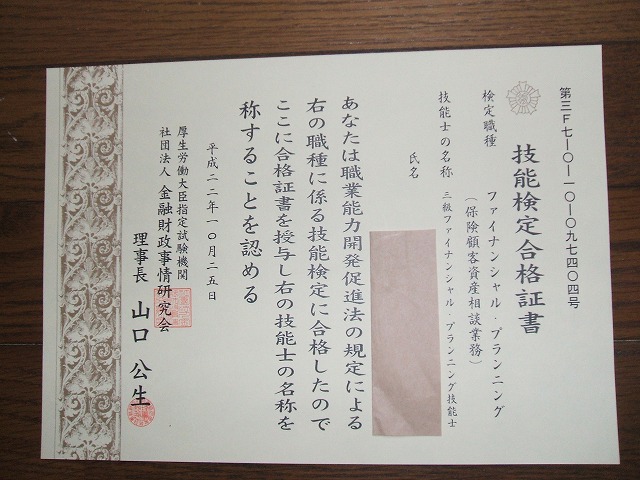 第三F七ー〇ー一〇ー〇九七四〇四号
技能検定合格証書
検定職種 ファイナンシャル・プランニング
(保険顧客資産相談業務)
技能士の名称 三級ファイナンシャル・プランニング技能士
氏名
あなたは職業能力開発促進法の規定による
右の職種に係る技能検定に合格したので
ここに合格証書を授与し右の技能士の名称を
称することを認める
平成二二年一〇月二五日
厚生労働大臣指定試験機関
社団法人 金融財政事情研究会
理事長 山口 公生